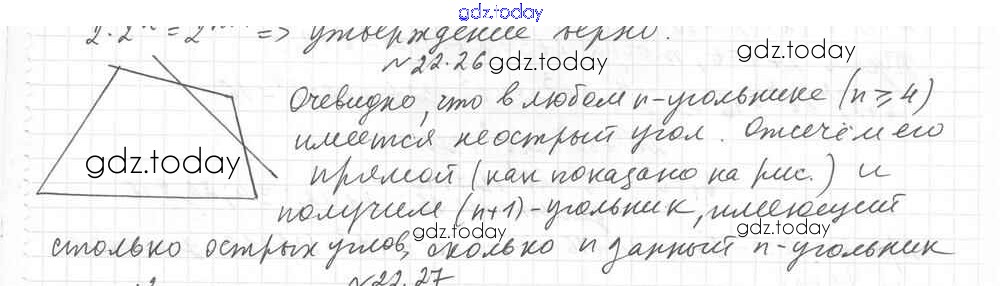 gdz.today
2·2ⁿ = 2 => утверждение верно.
№22.26 gdz.today
gdz.today
Очевидно, что в любом n-угольнике (n⩾4)
имеется неострый угол. Отсечём его
gdz.today
прямой (как показано на рис.) и
получим (n+1)-угольник, имеющий
gdz.today gdz.today
столько острых углов, сколько и данный n-угольник
№22.27